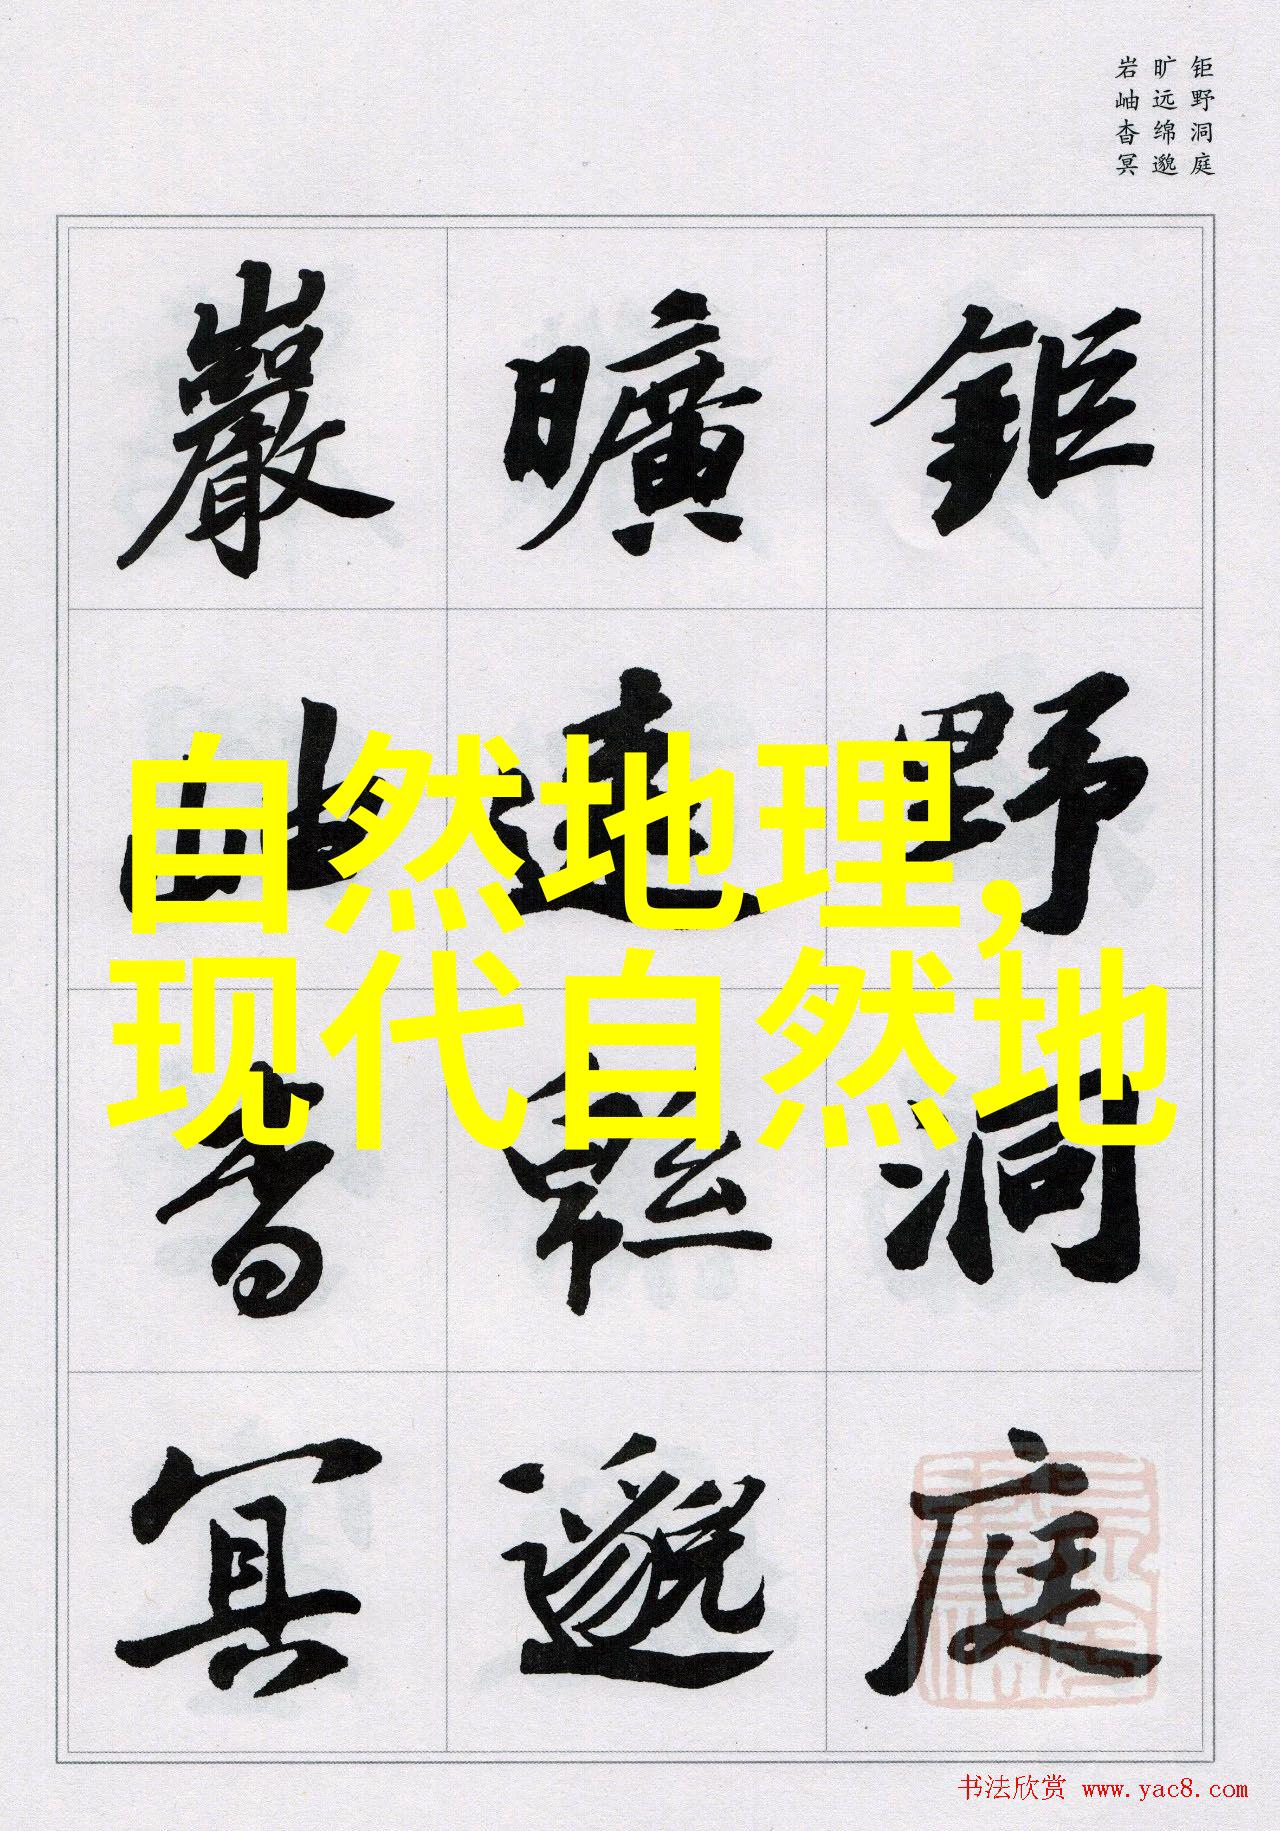 钜野洞庭
旷远绵邈
岩岫杳冥
鉅野洞庭
曠遠緜邈
巖岫杳冥
自然地理,
现代自然地
书法欣赏 www.yac8.com